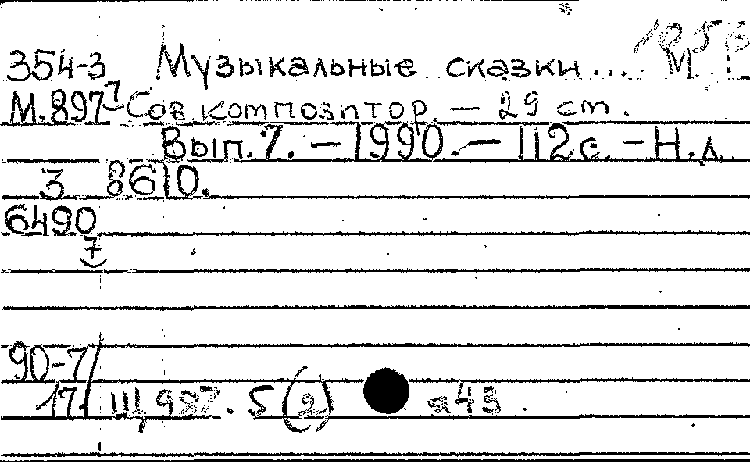 354-3 Музыкальные сказки ...
М.897 Сов композитор. — 29 cm.
7
Вып. 7. — 1990. — 112 с. — Н. д.
3 8610.
6490
7
90-7/
17 Щ 987. 5 (2) я43.